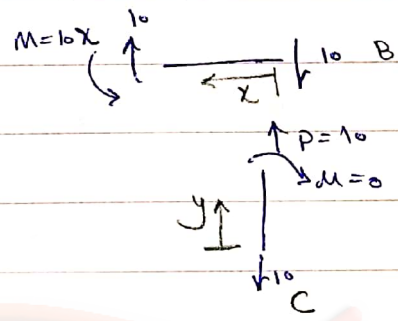 M=10x 10
10 B
x
P=10
M=0
y
10
C